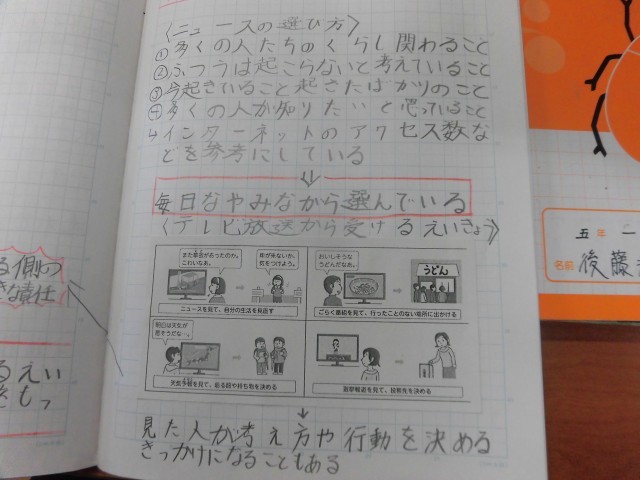 〈ニュースの選び方〉
①多くの人たちのくらし関わること
②ふつうは起こらないと考えていること
③今起きていること起きたばかりのこと
④多くの人が知りたいと思っていること
↳インターネットのアクセス数な
どを参考にしている
⇓
毎日なやみながら選んでいる
〈テレビ放送から受けるえいきょう〉
また事故があったのか。
こわいなあ。
車が来ないか、
気をつけよう。
おいしそうな
うどんだなあ。
うどん
ニュースを見て、自分の生活を見直す
ごらく番組を見て、行ったことのない場所に出かける
明日は天気が
悪そうだな…。
天気予報を見て、着る服や持ち物を決める
選挙報道を見て、投票先を決める
↓
見た人が考え方や行動を決める
きっかけになることもある
る側の
きな責任
るえい
をもっ
五年 一
名前 後藤